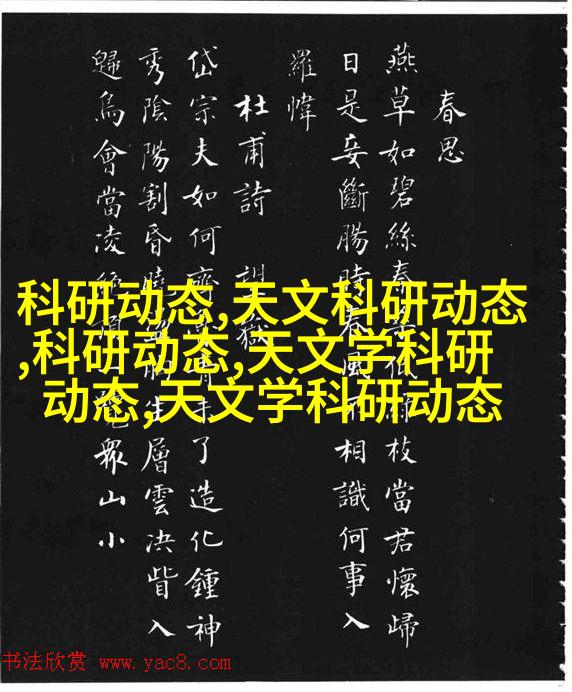 春思
燕草如碧絲秦低枝當君懷歸
日是妾斷腸時春風不相識何事入
羅幃
杜甫詩 望嶽
岱宗夫如何齊青未了造化鍾神
秀陰陽割昏曉生層雲決眥入
歸鳥會當凌頂覽眾山小
科研动态,天文科研动态
,科研动态,天文学科研
动态,天文学科研动态
书法欣赏 www.yac8.com